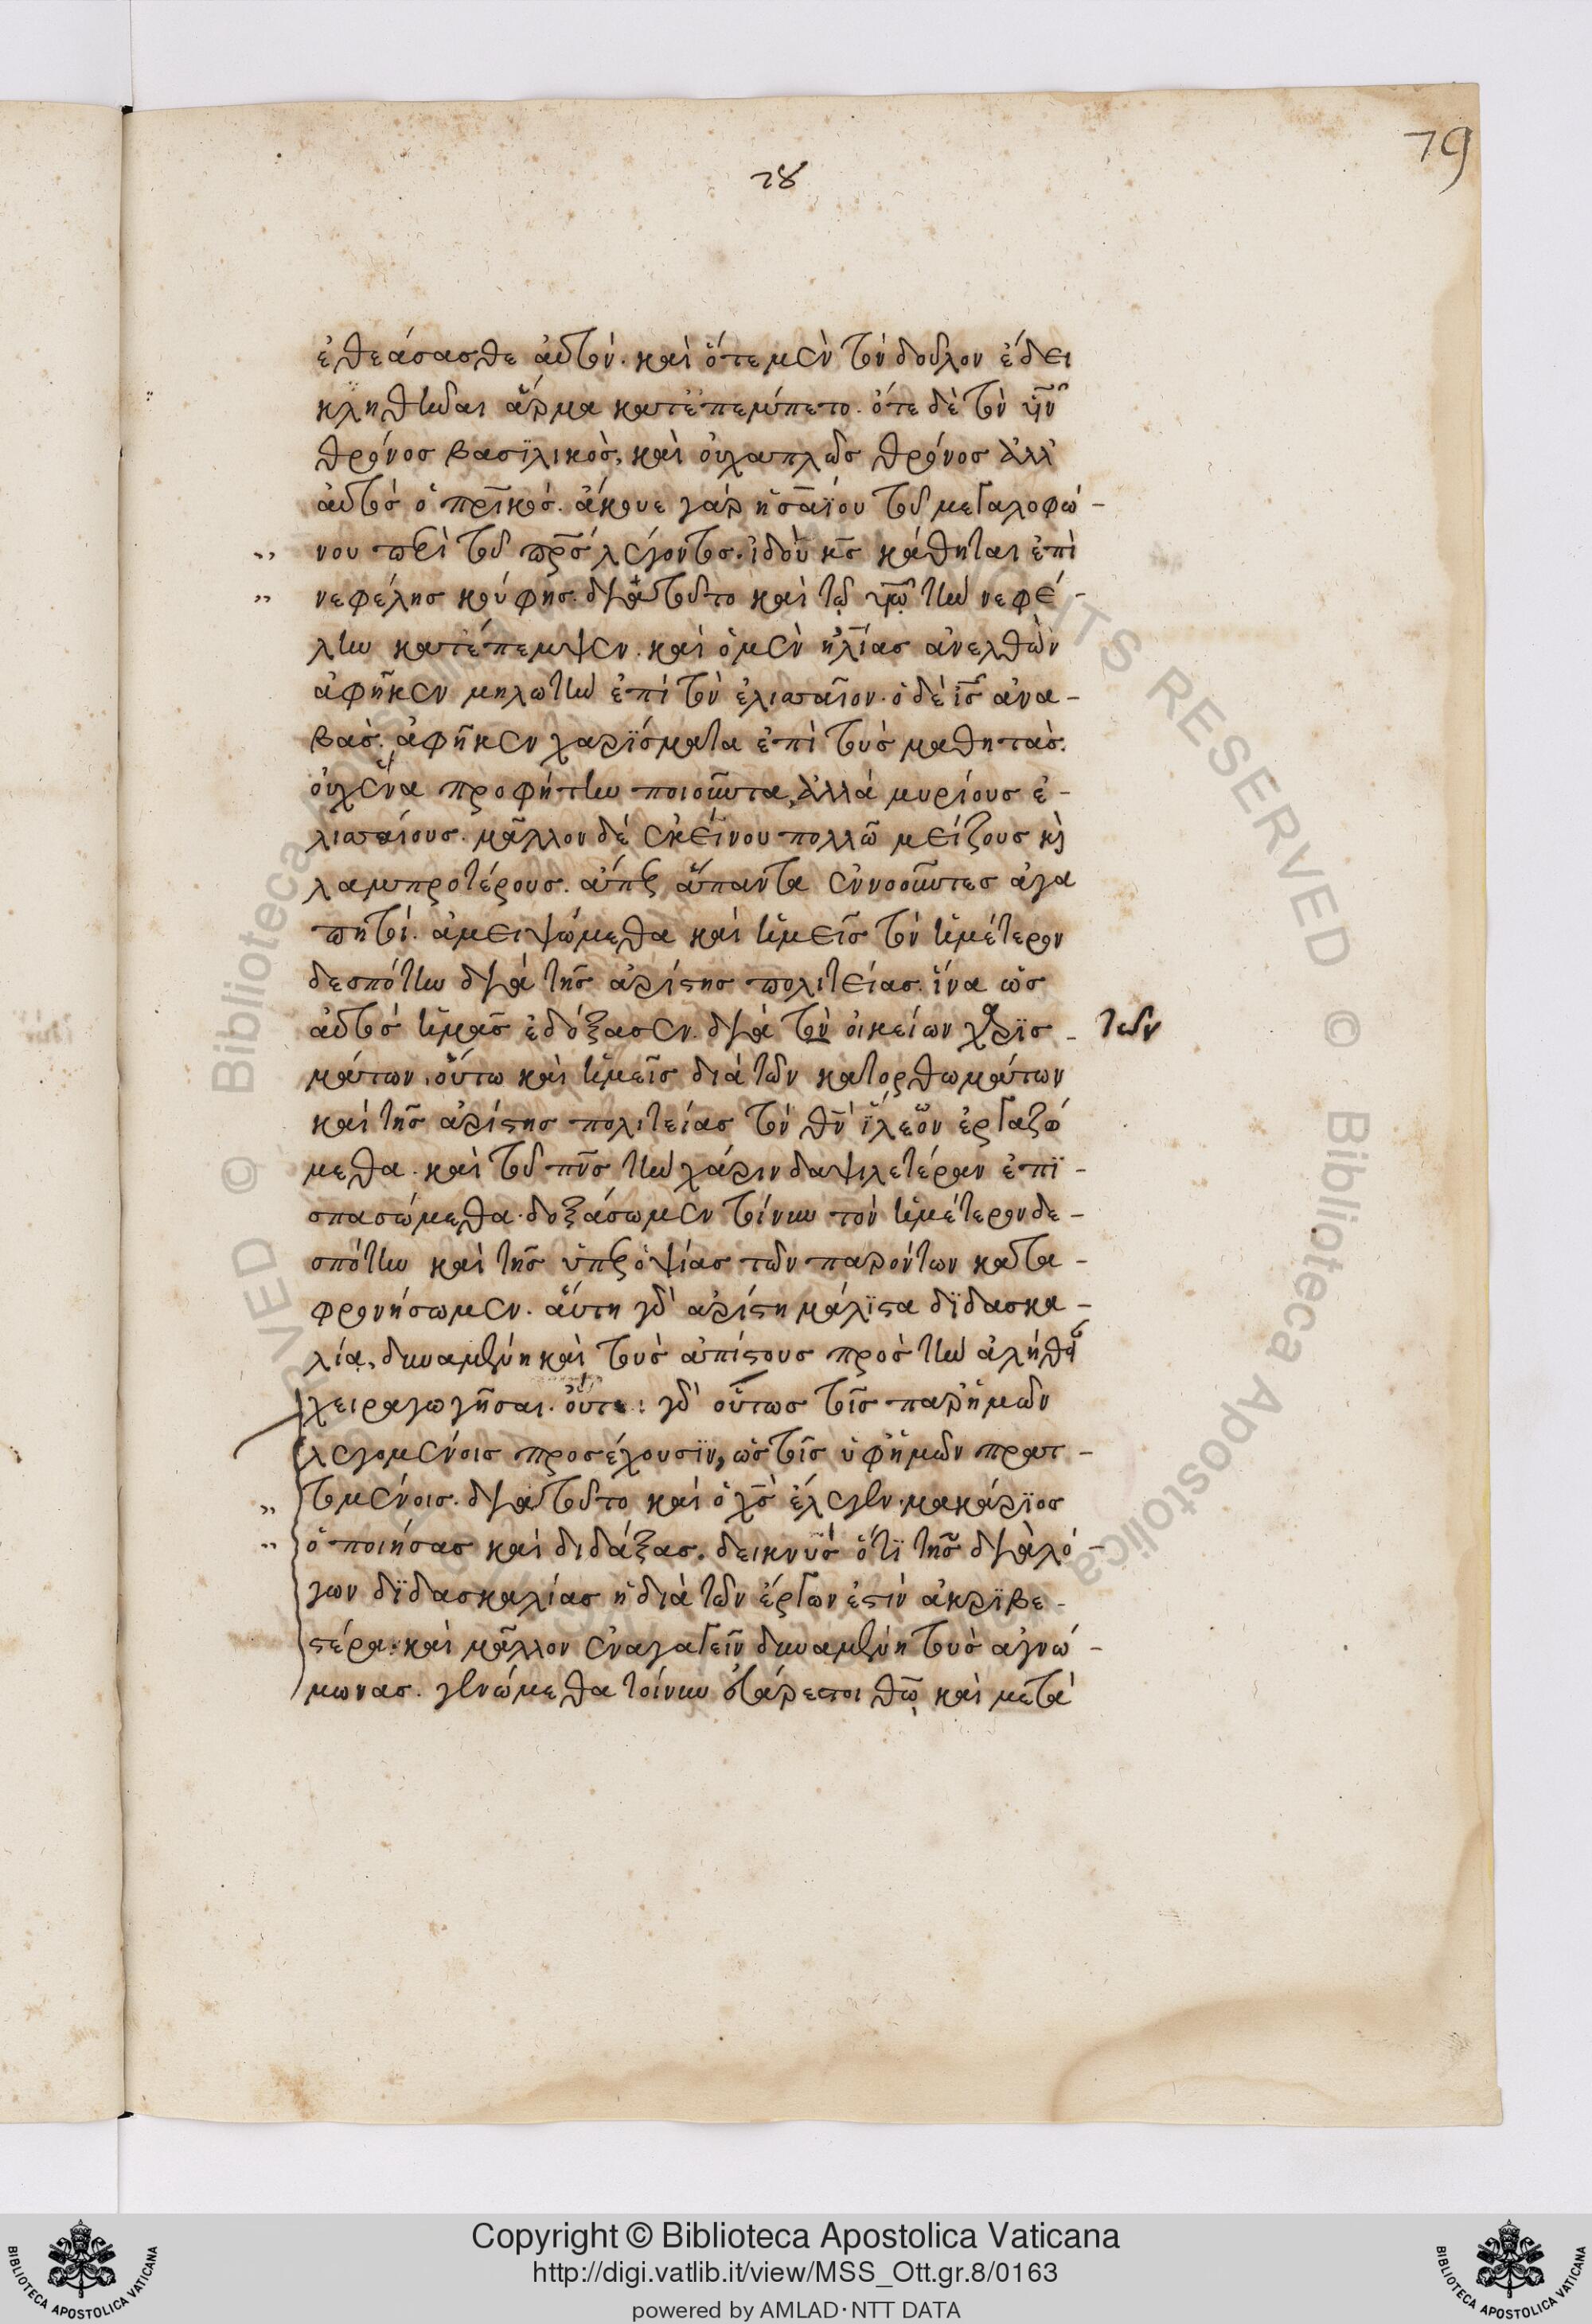 79
78
ἐθεάσασθε αὐτόν. καὶ ὅτε μὲν τὸν δοῦλον ἔδει
κληθῆναι ἅρμα κατεπέμπετο. ὅτε δὲ τὸν υἱν
θρόνος βασϊλικὸς, καὶ οὐχ ἁπλῶς θρόνος ἀλλ'
αὐτὸς ὁ πρικός. ἄκουε γὰρ ἠσαΐου τοῦ μεγαλοφώ-
νου περὶ τοῦ πρς λέγοντος. ἰδοὺ κς κάθηται ἐπὶ
νεφέλης κούφης. διὰ τοῦτο καὶ τῷ υἱῷ τὴν νεφέ-
λην κατέπεμψεν. καὶ ὁ μὲν ἠλίας ἀνελθὼν
ἀφῆκεν μηλωτὴν ἐπὶ τὸν ἐλισσαῖον. ὁ δὲ ις ἀνα-
βὰς. ἀφῆκεν χαρΐσματα ἐπὶ τοὺς μαθητὰς.
οὐχ ἕνα προφήτην ποιοῦντα, ἀλλὰ μυρίους ἐ-
λισσαίους. μᾶλλον δὲ ἐκείνου πολλῶ μείζους κὶ
λαμπροτέρους. ἅπερ ἅπαντα ἐννοοῦντες ἀγα
πητοί. ἀμειψώμεθα καὶ ἡμεῖς τὸν ἡμέτερον
δεσπότην διὰ τῆς ἀρίστης πολιτείας. ἵνα ὡς
αὐτὸς ἡμᾶς ἐδόξασεν. διὰ τὸν οἰκείων χαρϊσ- τῶν
μάτων, οὕτω καὶ ἡμεῖς διὰ τῶν κατορθωμάτων
καὶ τῆς ἀρίστης πολιτείας τὸν θν ἵλεων ἐργαζώ
μεθα. καὶ τοῦ πνς τὴν χάριν δαψιλετέραν ἐπϊ-
σπασώμεθα. δοξάσωμεν τοίνυν τὸν ἡμέτερον δε-
σπότην καὶ τῆς ὑπεροψίας τῶν παρόντων κατα-
φρονήσωμεν. αὕτη γὰρ ἀρίστη μάλϊστα δϊδασκα-
λία, δυναμένη καὶ τοὺς ἀπίστους πρὸς τὴν ἀλήθειαν
χειραγωγῆσαι. οὔτε γὰρ οὕτως τοῖς παρ' ἡμῶν
λεγομένοις προσέχουσϊν, ὡς τοῖς ὑφ' ἡμῶν πρατ-
τομένοις. διὰ τοῦτο καὶ ὁ χς ἔλεγεν. μακάρϊος
ὁ ποιήσας καὶ διδάξας. δεικνὺς ὅτϊ τῆς διὰ λό-
γων δϊδασκαλίας ἡ διὰ τῶν ἔργων ἐστὶν ἀκρϊβε-
στέρα. καὶ μᾶλλον ἐναγαγεῖν δυναμένη τοὺς ἀγνώ-
μωνας. γενώμεθα τοίνυν εὐάρεστοι θῷ καὶ μετὰ
Copyright © Biblioteca Apostolica Vaticana
http://digi.vatlib.it/view/MSS_Ott.gr.8/0163
powered by AMLAD·NTT DATA